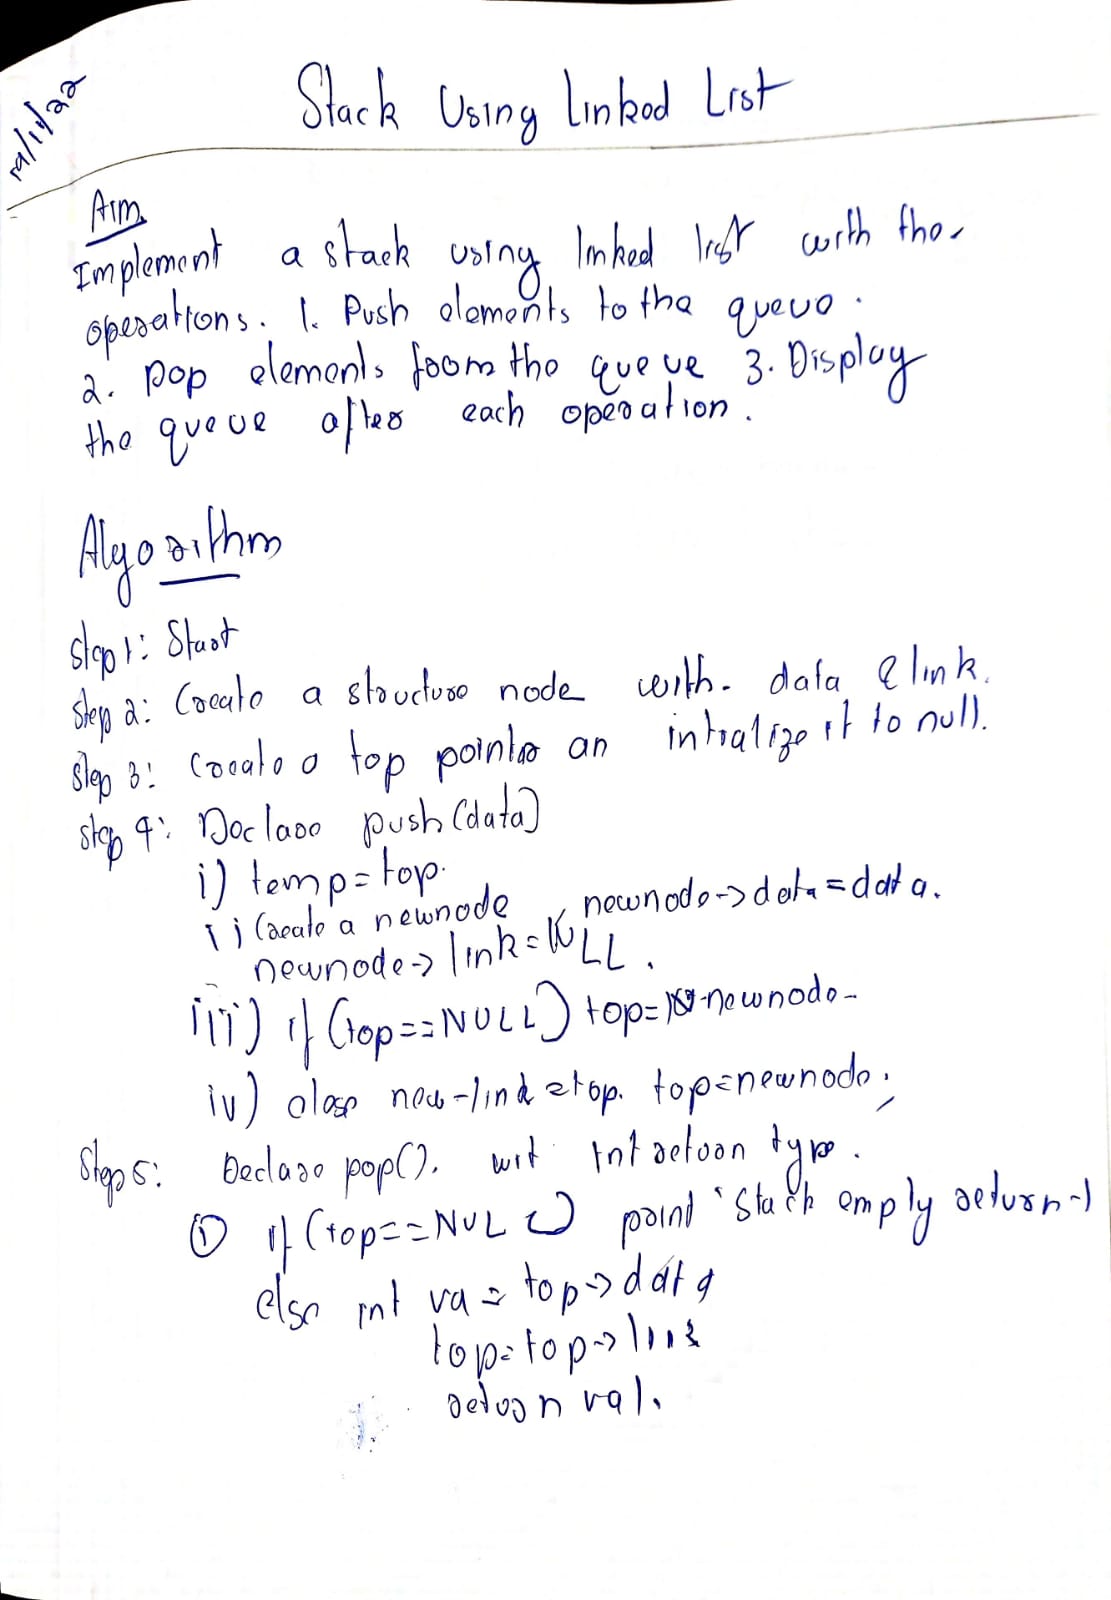 Stack Using Linked List
Aim
Implement a stack using linked list with the
operations. 1. Push elements to the queue.
2. Pop elements from the queue 3. Display
the queue after each operation.
Algorithm
Step 1: Start
Step 2: Create a structure node with data & link.
Step 3: Create a top pointer an intialize it to null.
Step 4: Declare push(data)
i) temp=top.
ii) Create a newnode, newnode->data=data.
newnode->link=NULL.
iii) if (top==NULL) top=newnode
iv) else new-link=top. top=newnode;
Step 5: Declare pop(). wit int return type.
① if (top==NULL) print "Stack empty return-1
else int va = top->data
top=top->link
return val.